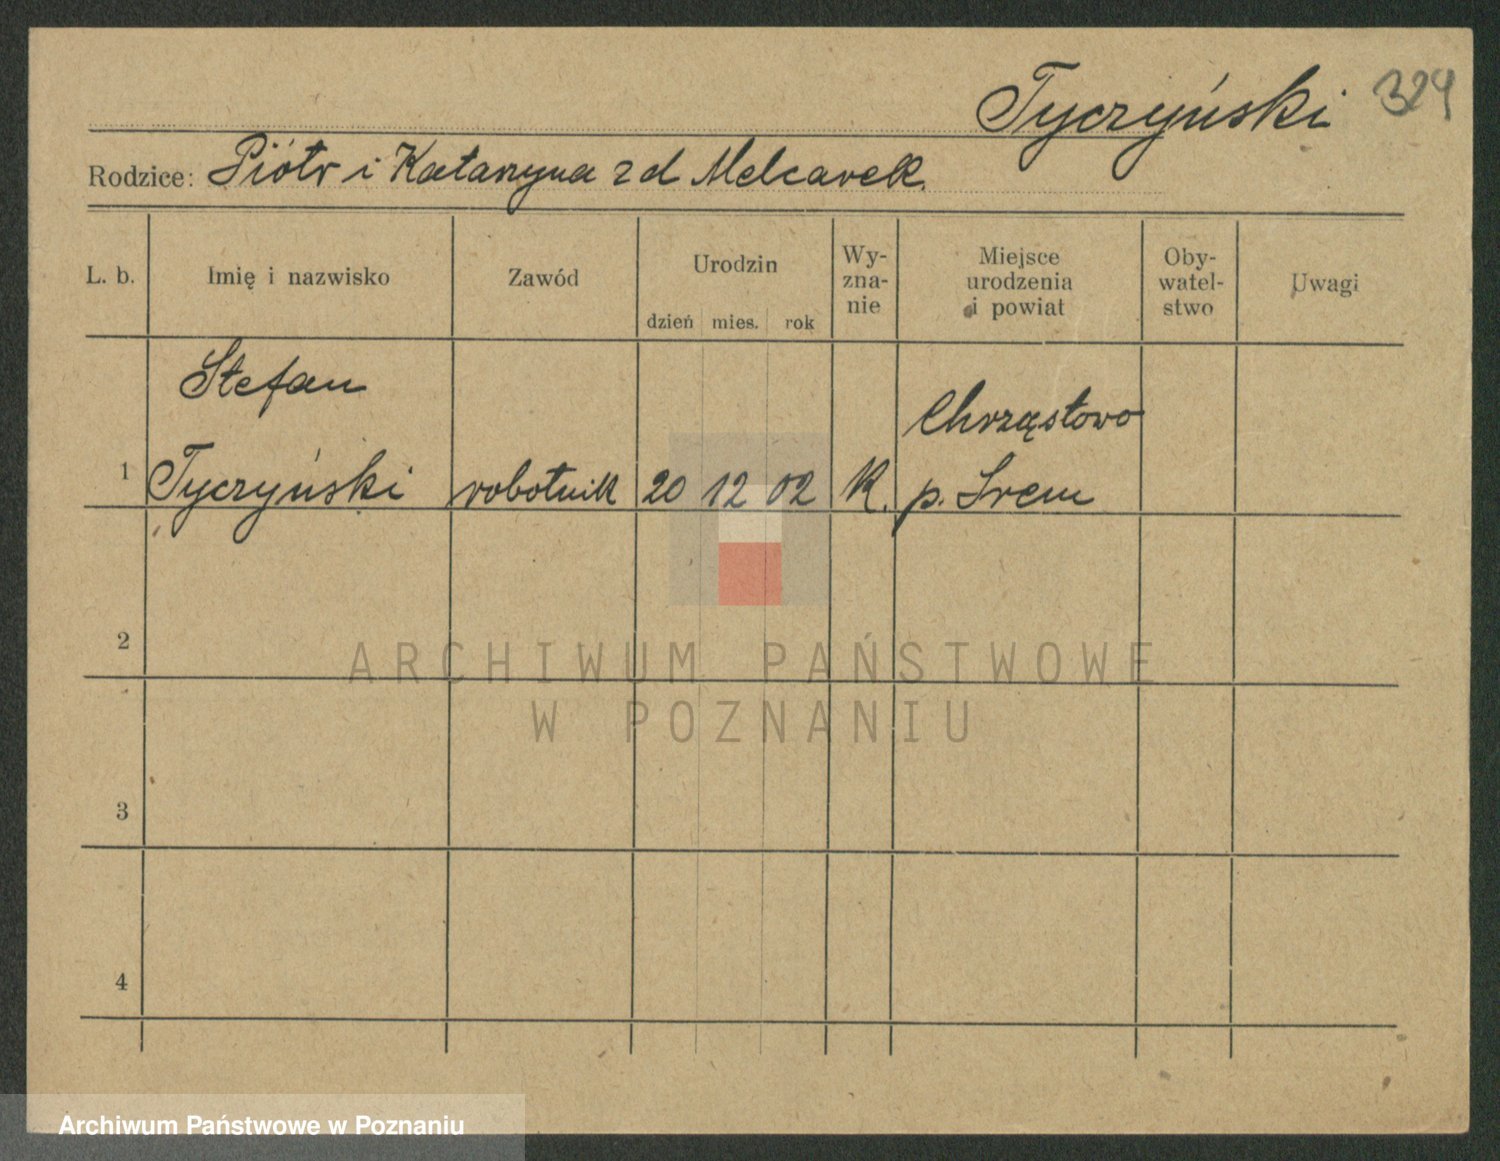 Tyczyński 324
Rodzice: Piótr i Katarzyna z d Melcarek.
L. b. Imię i nazwisko Zawód Urodzin dzień mies. rok Wy-znanie Miejsce urodzenia i powiat Oby-watel-stwo Uwagi
Stefan
Chrząstowo
1 Tyczyński robotnik 20 12 02 K. p. Śrem
2
3
4
ARCHIWUM PAŃSTWOWE
W POZNANIU
Archiwum Państwowe w Poznaniu